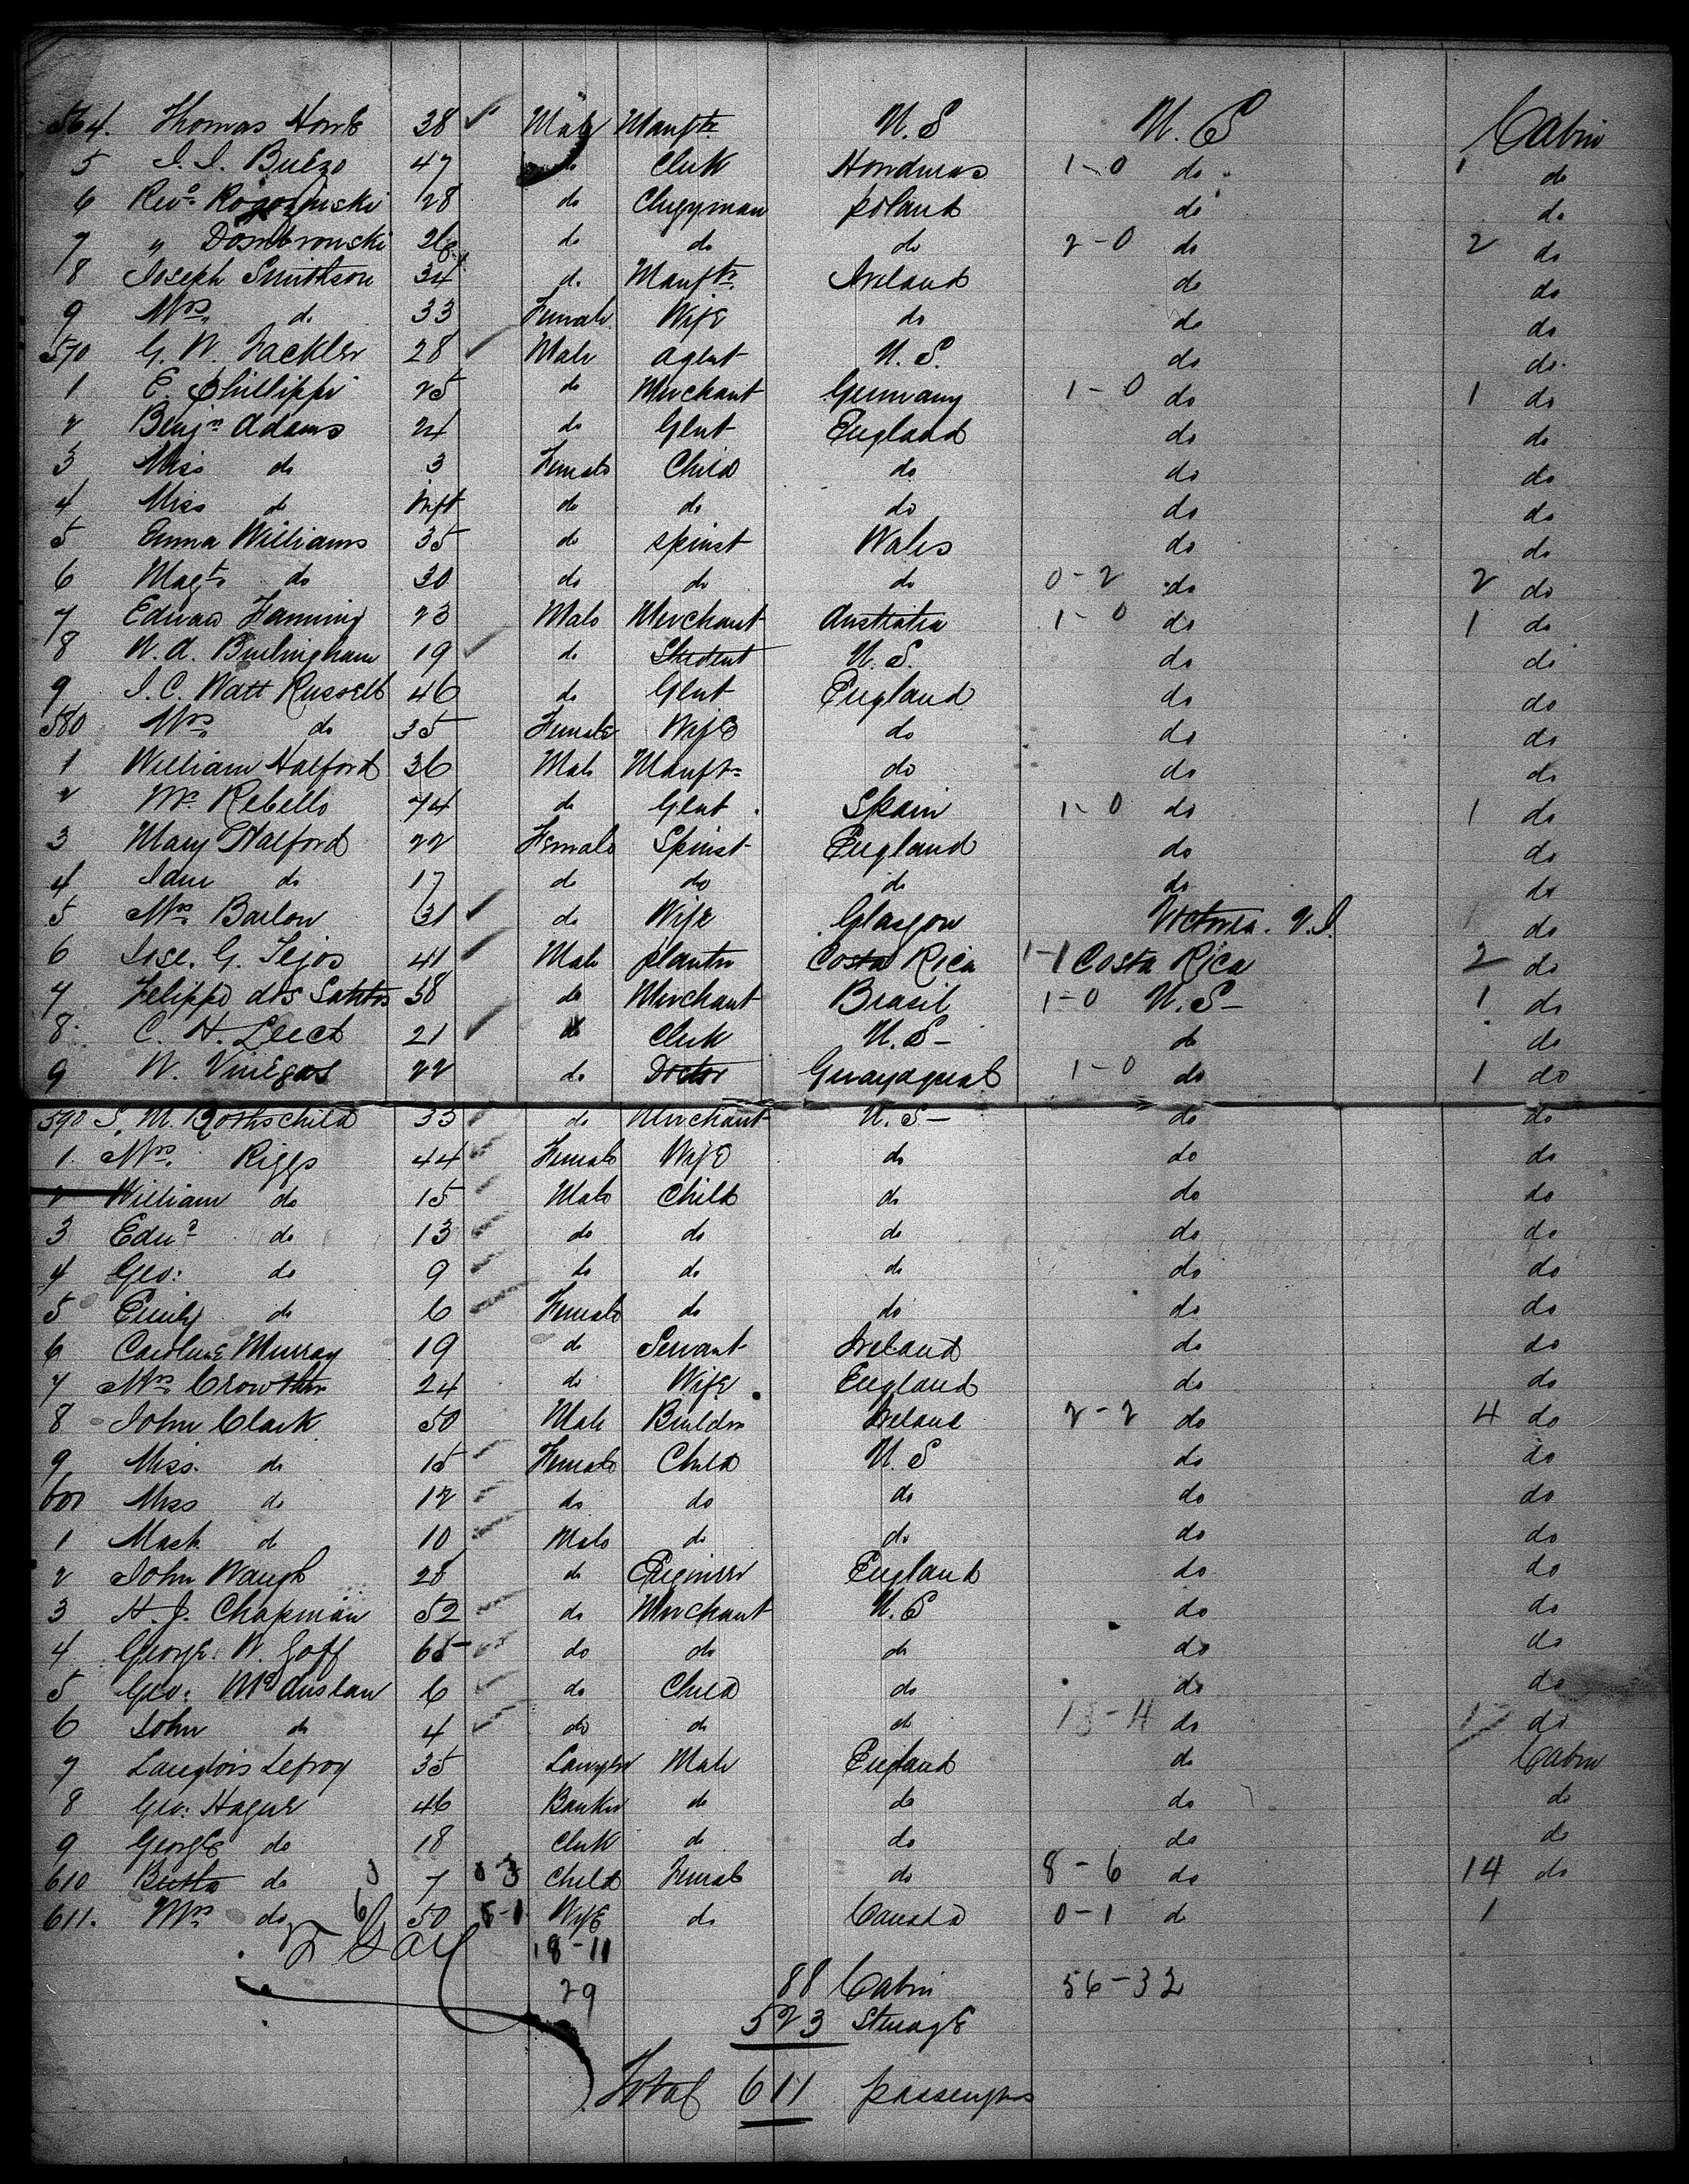 564. Thomas Howe 38 Male Manuftr U.S U.S Cabin
5 J. J. Buezo 47 do Clerk Honduras 1-0 do 1 do
6 Revd Rogozinski 28 do Clergyman poland do do
7 " Dombrowski 26 do do do 2-0 do 2 do
8 Joseph Smithson 34 do Manuftr Ireland do do
9 Mrs do 33 Female Wife do do do
570 G. W. Fackler 28 Male agent U.S. do do
1 E. Phillippi 25 do Merchant Germany 1-0 do 1 do
2 Benjn Adams 24 do Glent England do do
3 Miss do 3 Female Child do do do
4 Miss do Inft do do do do do
5 Emma Williams 35 do spinst Wales do do
6 Magt do 30 do do do 0-2 do 2 do
7 Edward Fanning 23 Male Merchant Australia 1-0 do 1 do
8 W. A. Burlingham 19 do Student U.S. do do
9 J. C. Watt Russell 46 do Glent England do do
580 Mrs do 35 Female Wife do do do
1 William Halford 36 Male Manuftr do do do
2 Mr Rebello 74 do Glent Spain 1-0 do 1 do
3 Mary Halford 22 Female Spinst England do do
4 Jane do 17 do do do do do
5 Mrs Barlow 31 do Wife Glasgow Victoria. V.I. do
6 Jose. G. Tejos 41 Male planter Costa Rica 1-1 Costa Rica 2 do
7 Felippe dos Santos 58 do Merchant Brasil 1-0 U.S- 1 do
8 C. H. Leech 21 do Clerk U.S- do do
9 W. Vinegas 22 do Doctor Guayaqueal 1-0 do 1 do
590 S. M. Rothschild 33 do Merchant U.S- do do
1. Mrs. Riggs 44 Female Wife do do do
2 William do 15 Male Child do do do
3 Edwd do 13 do do do do do
4 Geo: do 9 do do do do do
5 Emily do 6 Female do do do do
6 Caroline Murray 19 do Servant Ireland do do
7 Mrs Crowther 24 do Wife England do do
8 John Clark 50 Male Builder Ireland 2-2 do 4 do
9 Miss. do 15 Female Child U.S do do
600 Miss do 12 do do do do do
1 Mast. do 10 Male do do do do
2 John Waugh 28 do Engineer England do do
3 H. J. Chapman 52 do Merchant U.S do do
4 George. W. Goff 65 do do do do do
5 Geo: McAuslan 6 do Child do do do
6 John do 4 do do do 13-4 do 17 do
7 Langlois Lefroy 35 Lawyer Male England do Cabin
8 Geo: Hague 46 Banker do do do do
9 George do 18 Clerk do do do do
610 Bertha do 3 7 0-3 Child Female do 8-6 do 14 do
611. Mrs do 6 50 5-1 Wife do Canada 0-1 do 1
18-11
29 88 Cabin 56-32
523 Steerage
Total 611 passengers